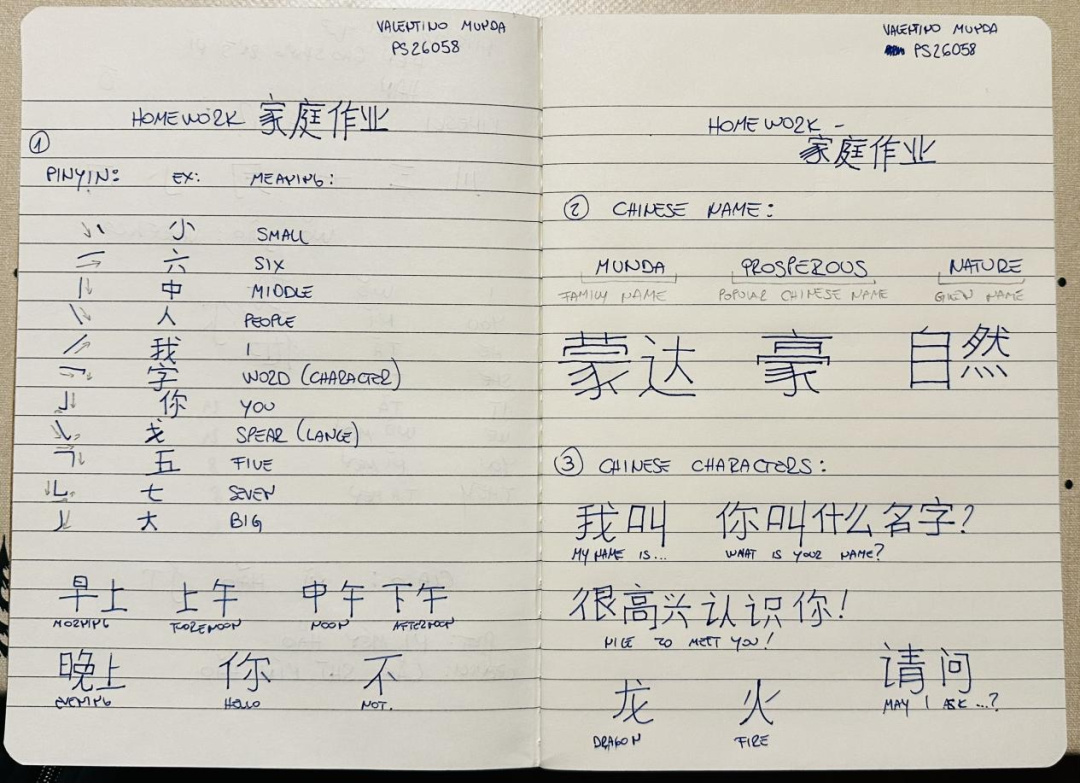 VALENTINO MUNDA
PS26058
HOMEWORK 家庭作业
1
PINYIN: EX: MEANING:
小 SMALL
六 SIX
中 MIDDLE
人 PEOPLE
我 I
字 WORD (CHARACTER)
你 YOU
戈 SPEAR (LANCE)
五 FIVE
七 SEVEN
大 BIG
早上 上午 中午 下午
MORNING FOORENOON NOON AFTERNOON
晚上 你 不
EVENING HELLO NOT.
VALENTINO MUNDA
PS26058
HOMEWORK -
家庭作业
2 CHINESE NAME:
MUNDA PROSPEROUS NATURE
FAMILY NAME POPULAR CHINESE NAME GIVEN NAME
蒙达 豪 自然
3 CHINESE CHARACTERS:
我叫 你叫什么名字?
MY NAME IS... WHAT IS YOUR NAME?
很高兴认识你!
NICE TO MEET YOU!
请问
MAY I ASK ...?
龙 火
DRAGON FIRE